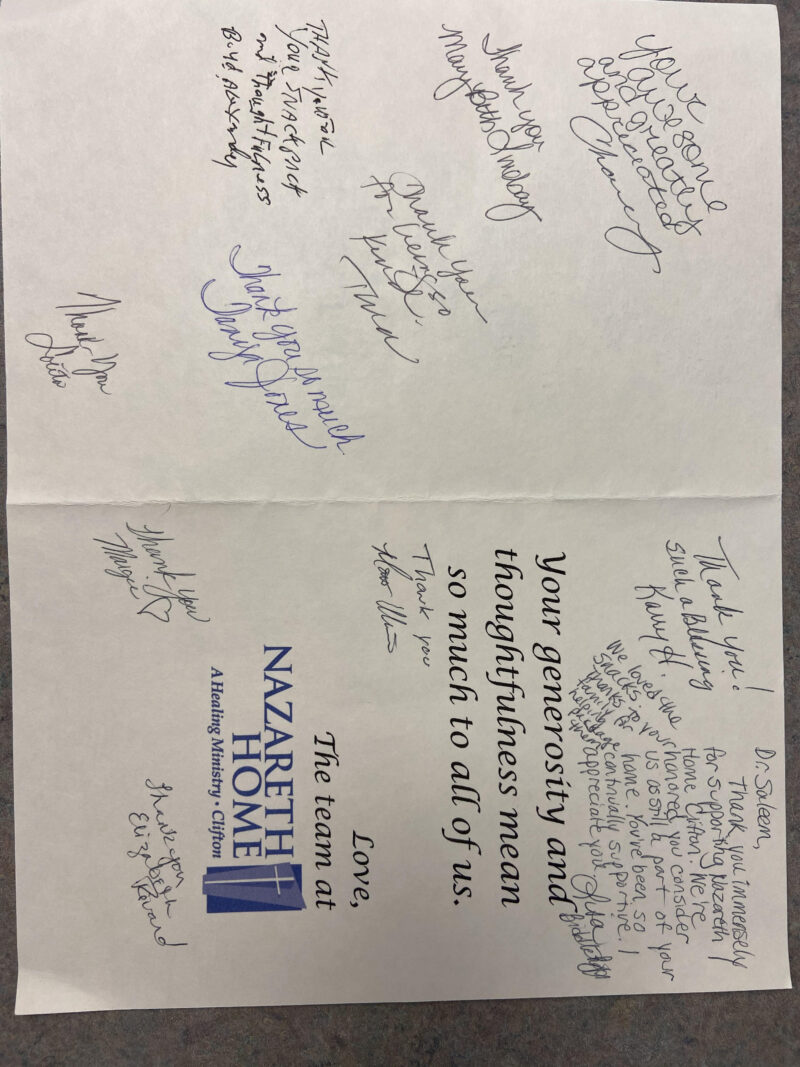 Your
awesome
and greatly
appreciated
Thank you
Mary Beth Lindsay
THANK YOU FOR
YOUR SNACK PACK
and thoughtfulness
Thank You
for being so
kind.
Thank you so much
Tanya Jones
Thank You
Thank you!
such a Blessing
Karry H.
Dr. Saleem,
Thank you immensely
for supporting Nazareth
Home Clifton. We're
honored you consider
us as still a part of your
home. You've been so
continually supportive. I
appreciate you.
We loved the
snacks so
thanks for
your
family
helping
Your generosity and
thoughtfulness mean
so much to all of us.
Thank you
Love,
The team at
NAZARETH
HOME
A Healing Ministry • Clifton
Thank You
Margie
Thank you
Elizabeth
Revard